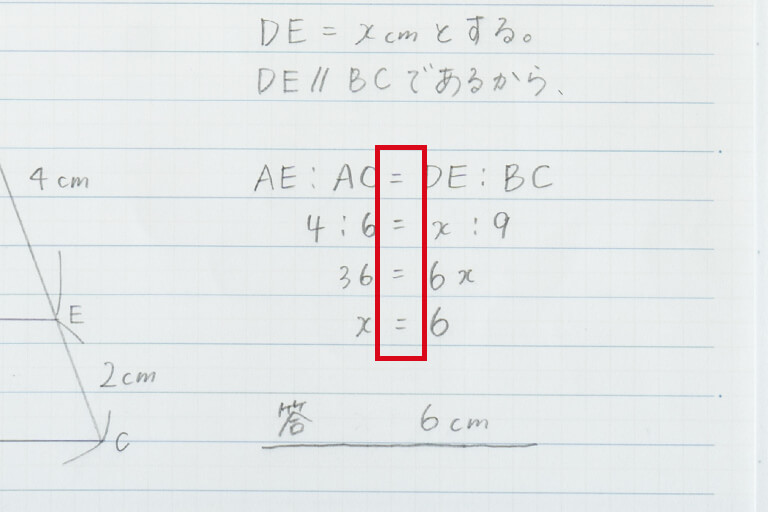 DE = x cm とする。
DE // BC であるから、
AE : AC = DE : BC
4 cm
4 : 6 = x : 9
36 = 6x
E
x = 6
2 cm
答 6 cm
C